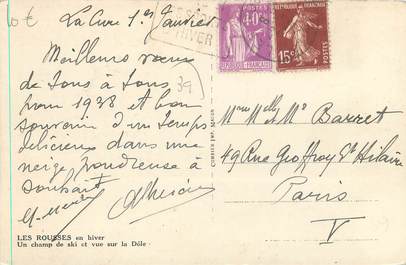 10 €
La Cure 1er Janvier
Meilleurs vœux
de tous à tous
pour 1938 et bon
souvenir d'un temps
délicieux dans une
neige poudreuse à
souhait
39
LES ROUSSES en hiver
Un champ de ski et vue sur la Dôle
D'HIVER
POSTES
40c
RÉPUBLIQUE FRANÇAISE
REPUBLIQUE FRANÇAISE
15c
POSTES
et Mr Barret
49 Rue Geoffroy St Hilaire
Paris
V